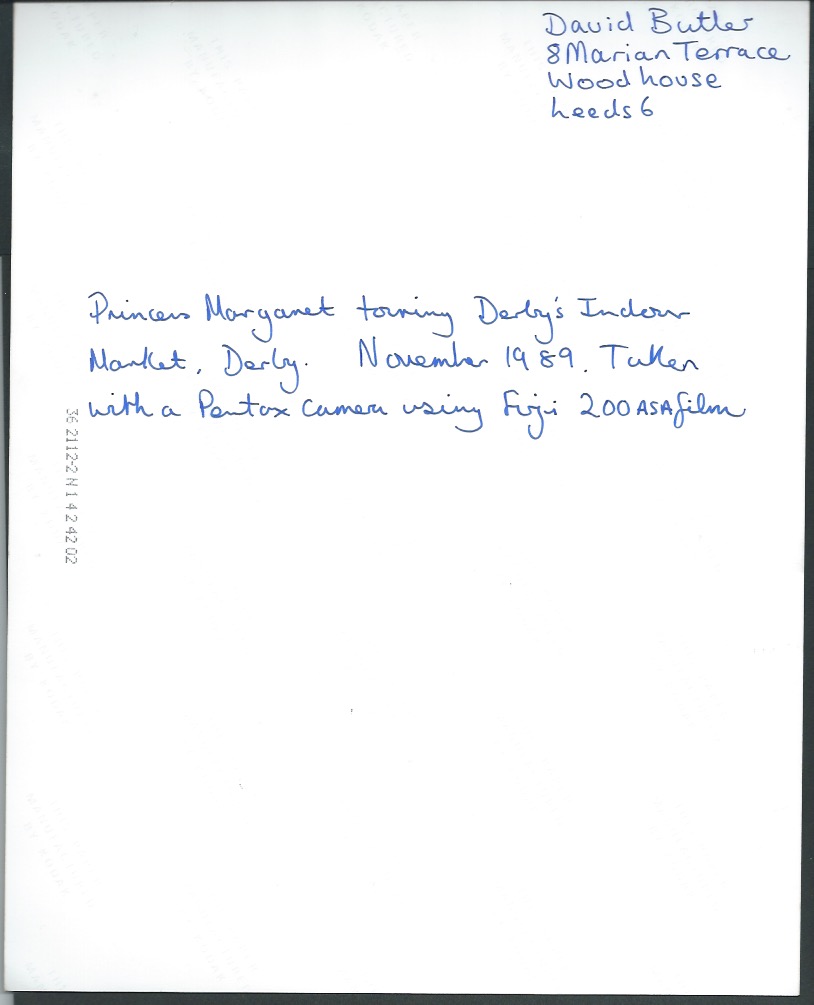 David Butler
8 Marian Terrace
Woodhouse
Leeds 6
Princess Margaret touring Derby's Indoor
Market, Derby. November 1989. Taken
with a Pentax camera using Fuji 200 ASA film
36 2112-2 N 1 4 2 42 02